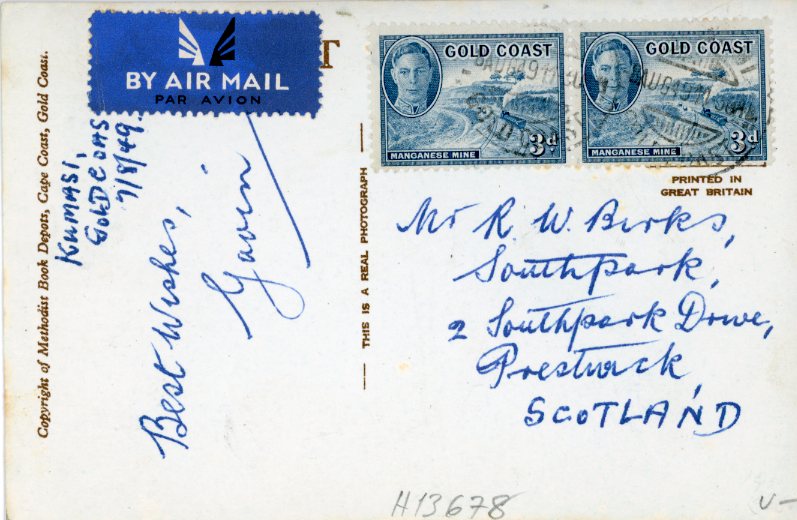 Copyright of Methodist Book Depots, Cape Coast, Gold Coast.
BY AIR MAIL
PAR AVION
KUMASI,
GOLD COAST
7/8/49.
Best Wishes,
Gavin
THIS IS A REAL PHOTOGRAPH
GOLD COAST
MANGANESE MINE
3d
GOLD COAST
MANGANESE MINE
3d
PRINTED IN
GREAT BRITAIN
Mr R. W. Birks,
Southpark,
2 Southpark Drive,
Prestwick,
SCOTLAND
H13678